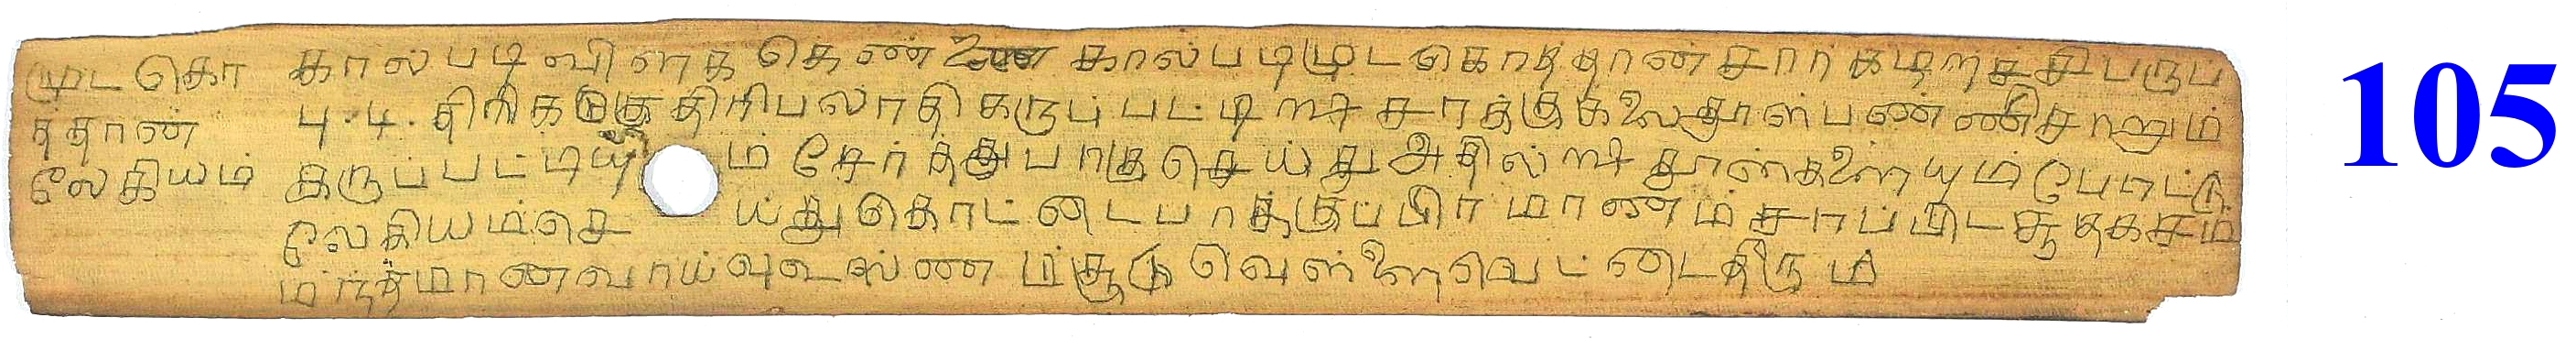 முடகொ கால்படி விளக கெண்ணை கால்படிமுடகொத்தான்சாார்கழற்ச்சிபருப்
த்தான் பு.டி. திரிகடுகு திரிபலாதி கருப்பட்டி சரக்குக்கலைதூள்பண்ணிசாறும்
லேகியம் கருப்பட்டியும் சேர்த்துபாகுசெய்து அதில் தூள்களையும் போட்டு
லேகியம்செய்துகொட்டைபாக்குப்பிரமாணம்சாப்பிடசூதகசம்
மந்த்மானவாய்வுஉஸ்ணம்சூடு வெள்ளைவெட்டைதீரும்
105